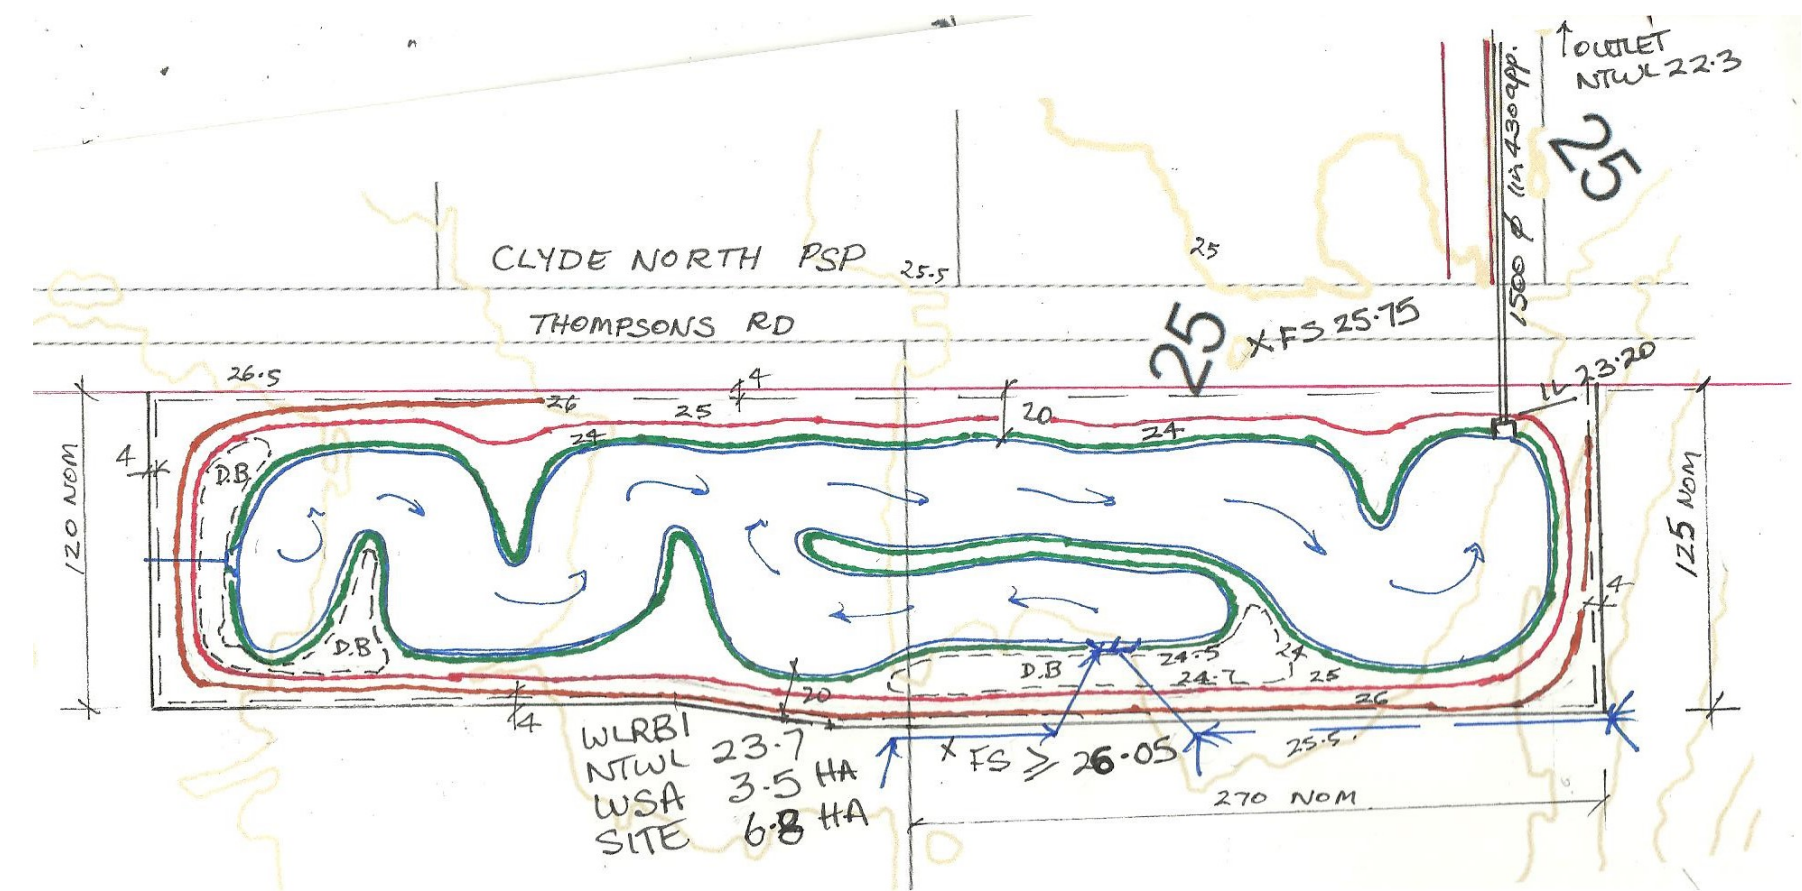 ↑ OUTLET
NTWL 22.3
1500 φ lin 430 app.
25
CLYDE NORTH PSP
25.5
25
THOMPSONS RD
25
X FS 25.75
IL 23.20
26.5
4
26
25
24
20
24
4
D.B
120 NOM
125 NOM
4
D.B
D.B
24.5
24.7
24
25
26
20
4
WLRB1
NTWL 23.7
WSA 3.5 HA
SITE 6.8 HA
X FS ≥ 26.05
25.5
270 NOM